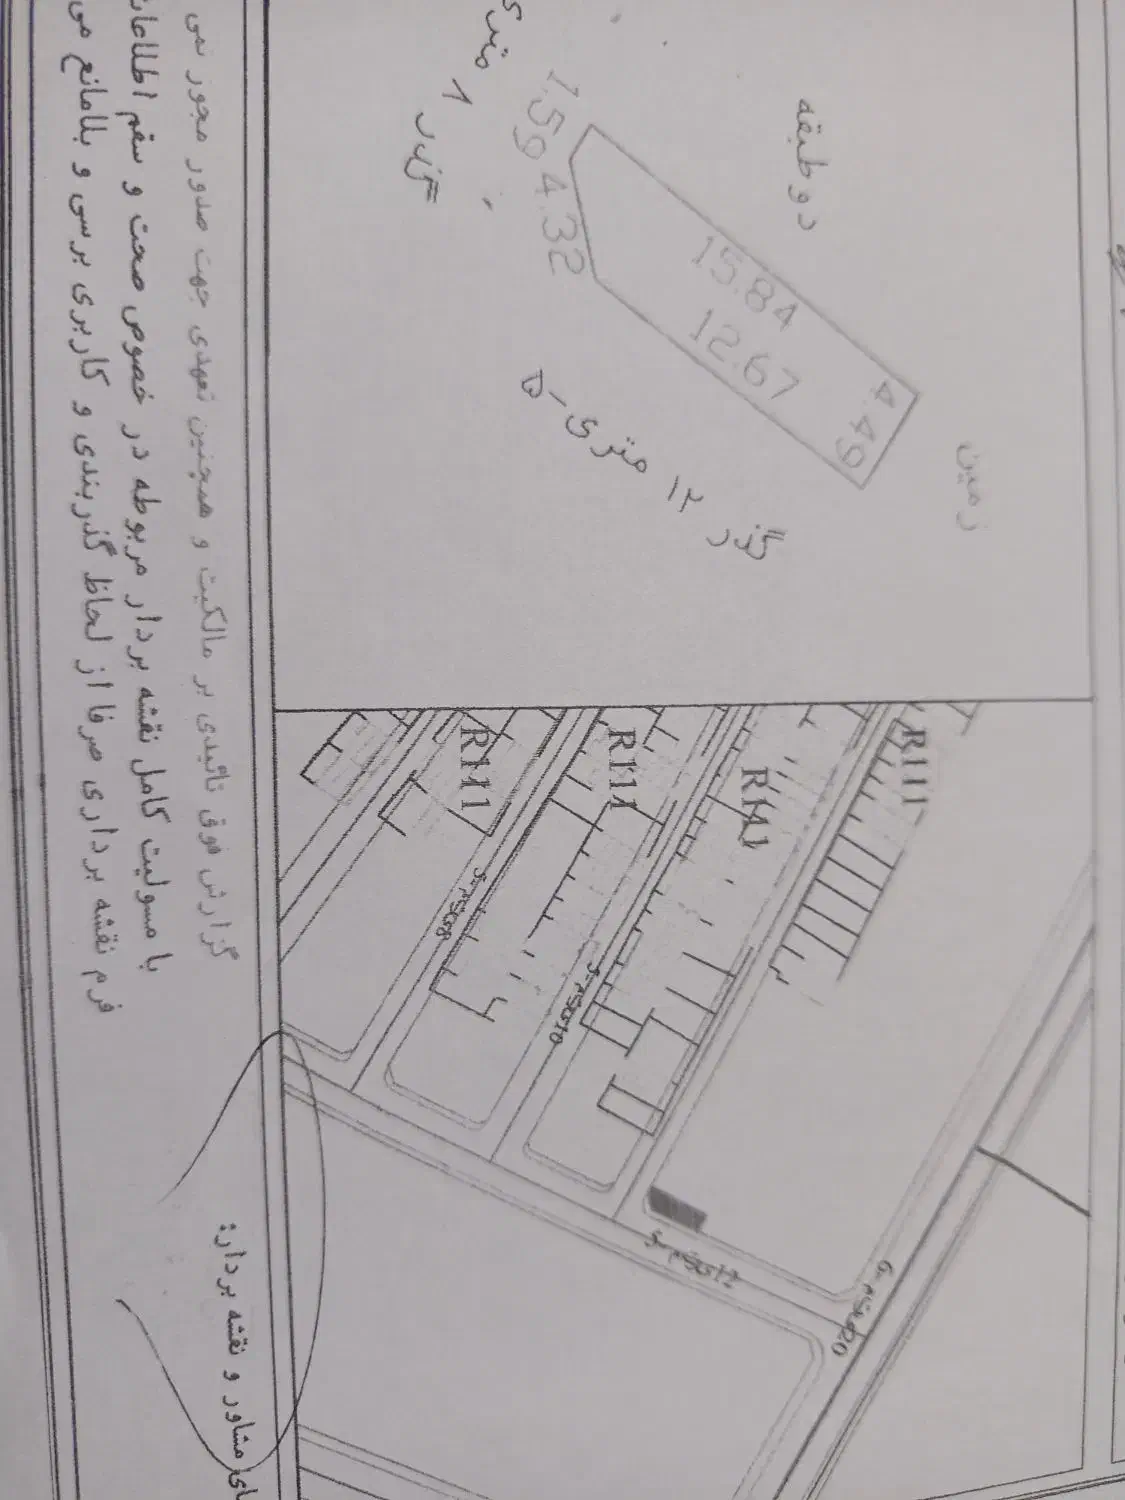 دو طبقه
زمین
15.84
12.67
4.49
4.32
1.59
گذر ۱۲ متری-۵
گذر ۸ متری
R111
R111
R111
R111
گزارش فوق تائیدی بر مالکیت و همچنین تعهدی جهت صدور مجوز نمی
با مسولیت کامل نقشه بردار مربوطه در خصوص صحت و سقم اطلاعات
فرم نقشه برداری صرفا از لحاظ گذربندی و کاربری برسی و بلامانع می
مشاور و نقشه بردار: